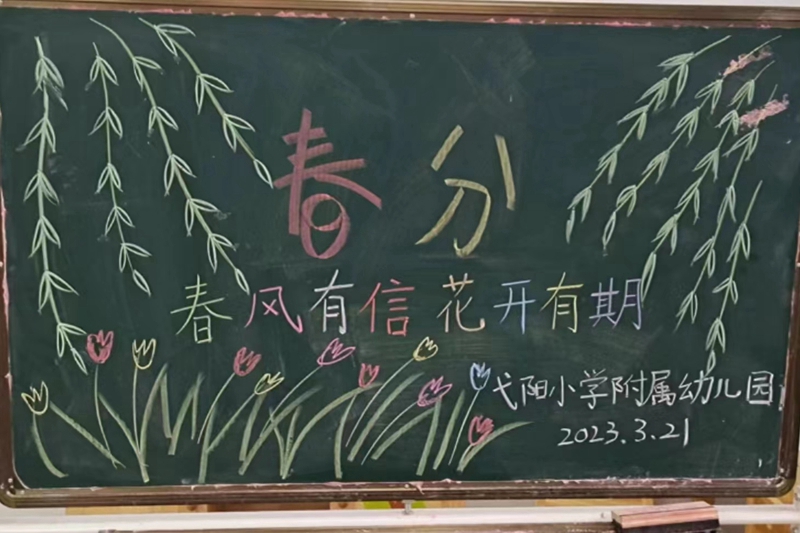 春分
春风有信花开有期
弋阳小学附属幼儿园
2023.3.21